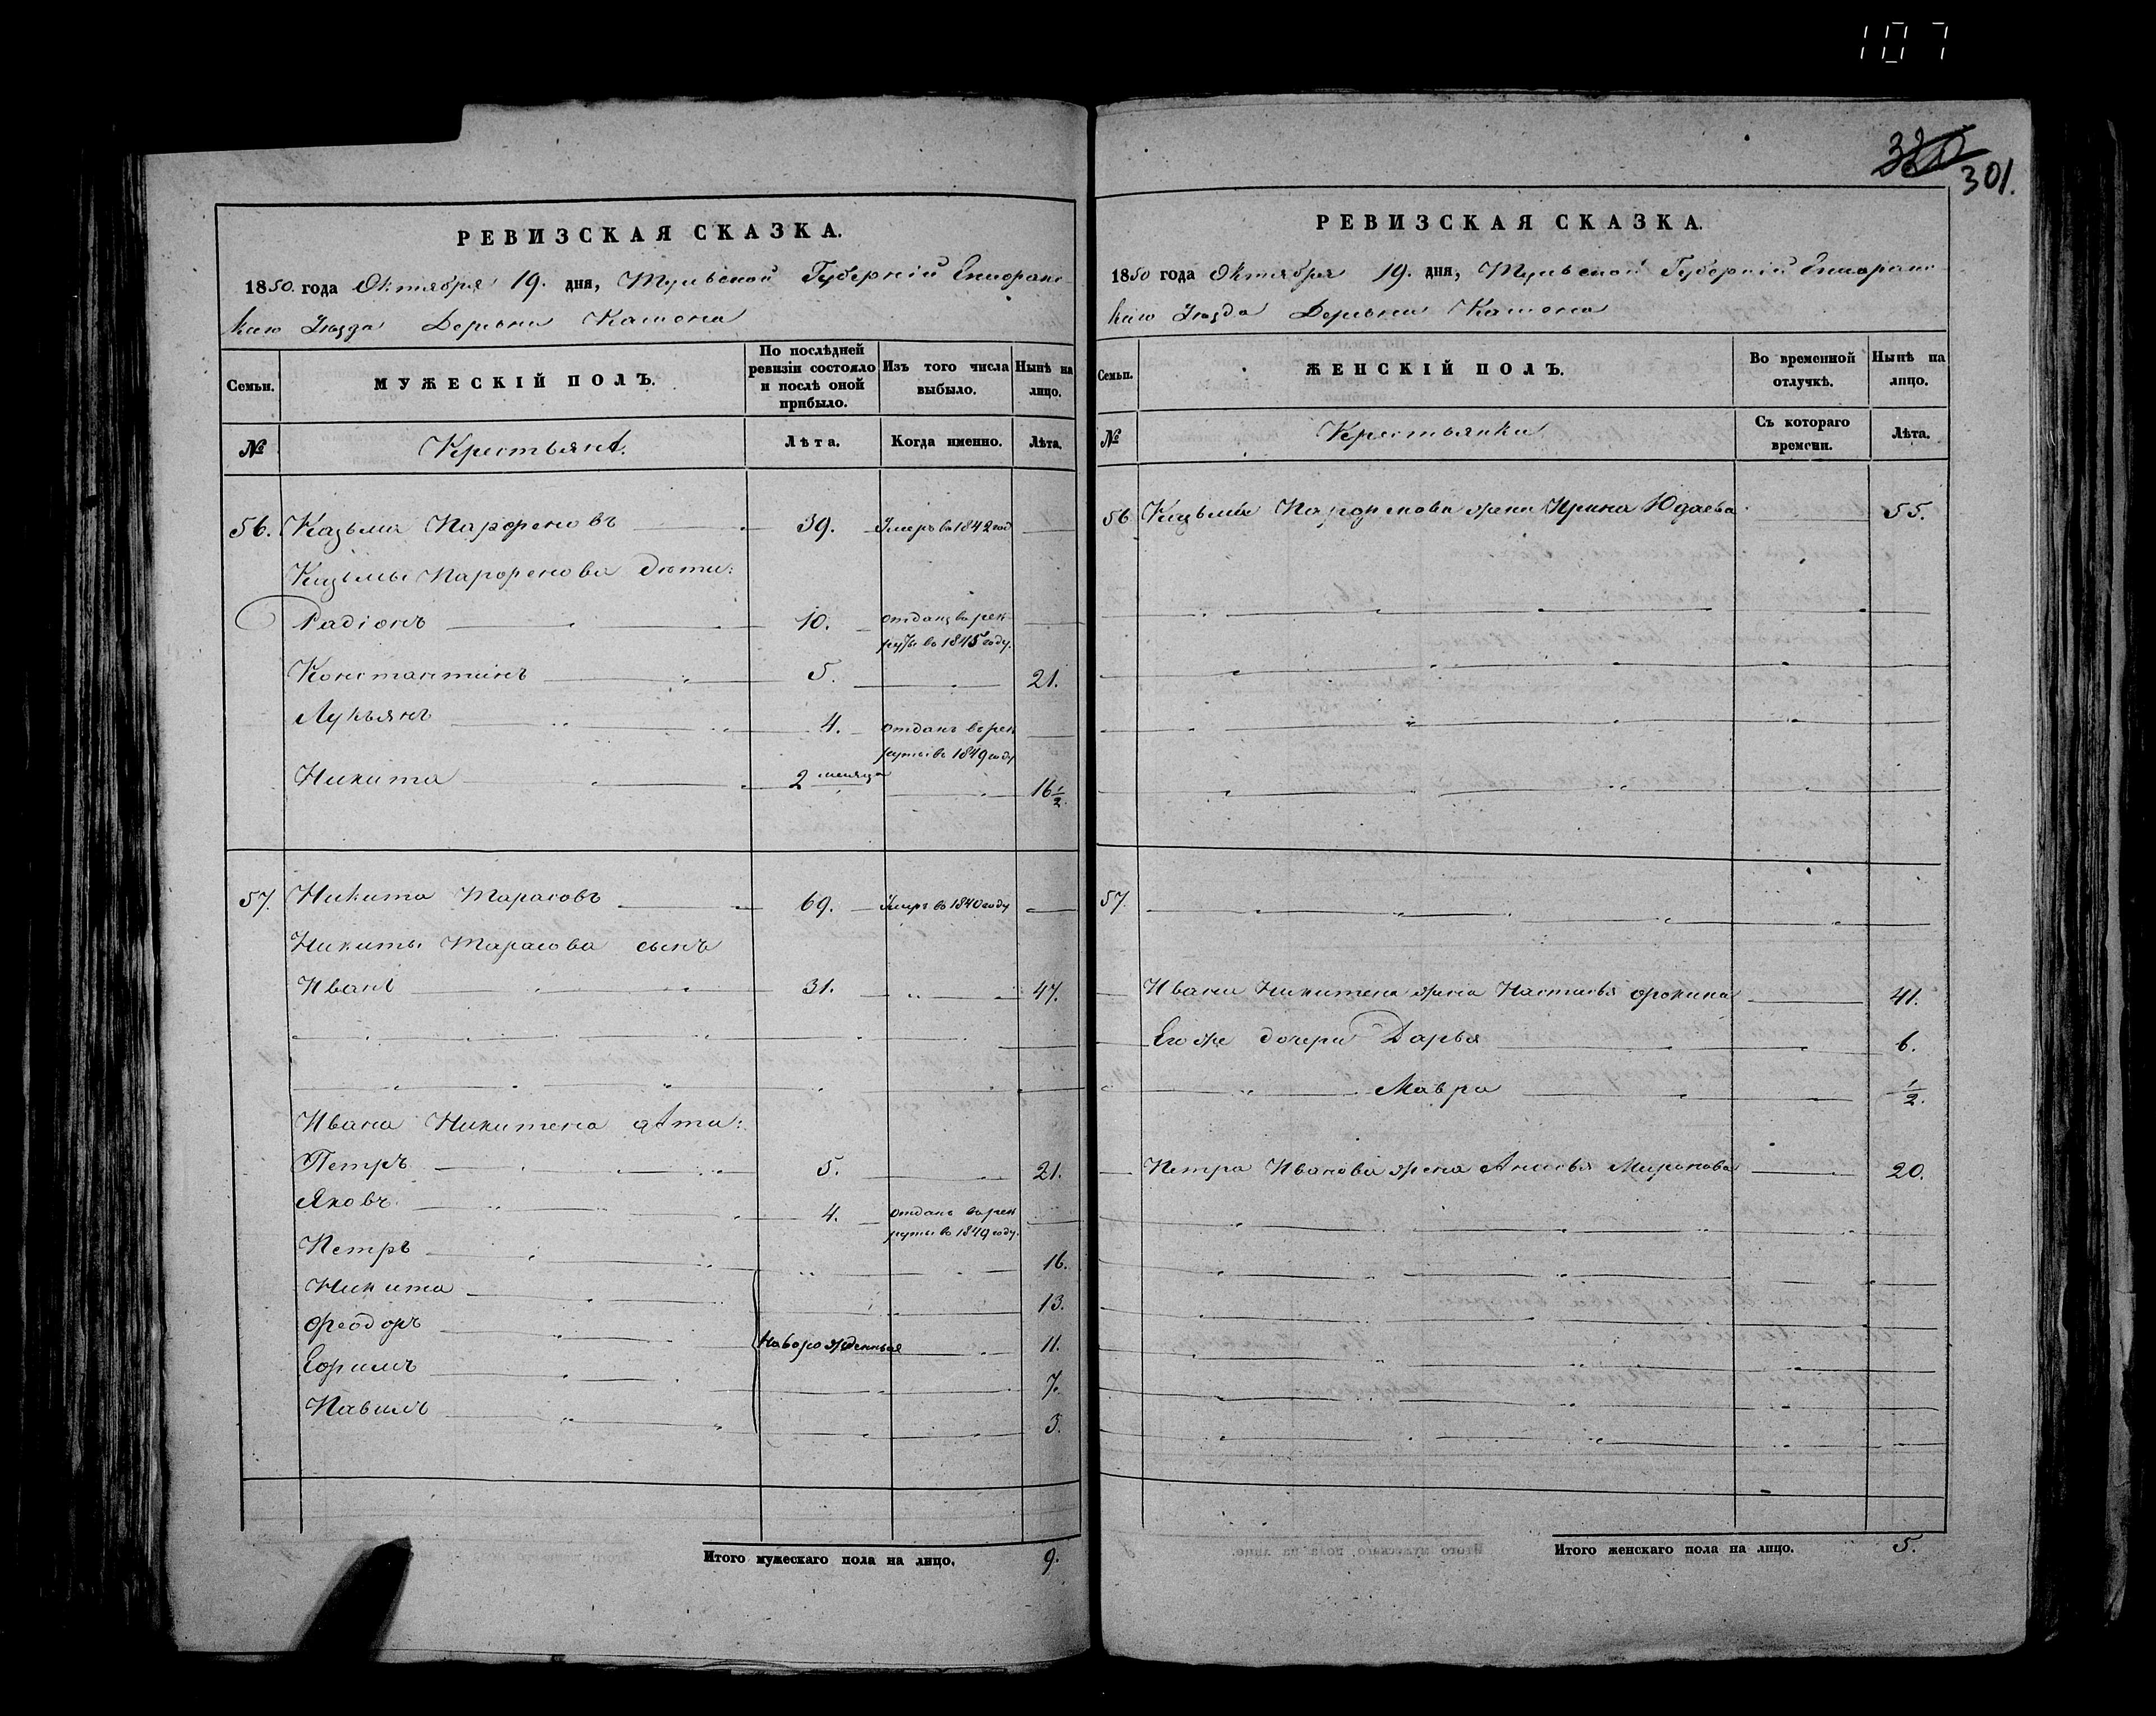 107
320
301.
РЕВИЗСКАЯ СКАЗКА.
1850. года Октября 19. дня, Тульской Губерніи Епифанс-
каго Уѣзда Деревни Камена
Семьи.
МУЖЕСКІЙ ПОЛЪ.
По послѣдней
ревизіи состояло
и послѣ оной
прибыло.
Изъ того числа
выбыло.
Нынѣ на
лицо.
№
Крестьянѣ.
Лѣта.
Когда именно.
Лѣта.
56. Казьма Парфеновъ 39. Умеръ въ 1842 год
Казьмы Парфенова дѣти:
Радіонъ 10. отданъ въ рек-
руты въ 1845 году.
Константинъ 5. 21.
Лукьянъ 4. отданъ въ рек
руты въ 1849 году
Никита 2 месяца 16½.
57. Никита Тарасовъ 69. Умръ въ 1840 году
Никиты Тарасова сынъ
Иванъ 31. 47.
Ивана Никитена дѣти:
Петръ 5. 21.
Яковъ 4. отданъ въ рек
руты въ 1849 году.
Петръ 16.
Никита 13.
Феодоръ Наворожденныя 11.
Ефимъ 7.
Павилъ 3.
Итого мужескаго пола на лицо. 9.
РЕВИЗСКАЯ СКАЗКА.
1850 года Октября 19. дня, Тульской Губерніи Епифанс-
каго Уѣзда Деревни Камена
Семьи.
ЖЕНСКІЙ ПОЛЪ.
Во временной
отлучкѣ.
Нынѣ на
лицо.
№
Крестьянки
Съ котораго
времени.
Лѣта.
56 Казьмы Парфенова жена Ирина Юдаева 55.
57.
Ивана Никитена жена Настасья Фокина 41.
Его же дочери Дарья 6.
Мавра ½.
Петра Иванова жена Анисья Миронова 20.
Итого женскаго пола на лицо. 5.